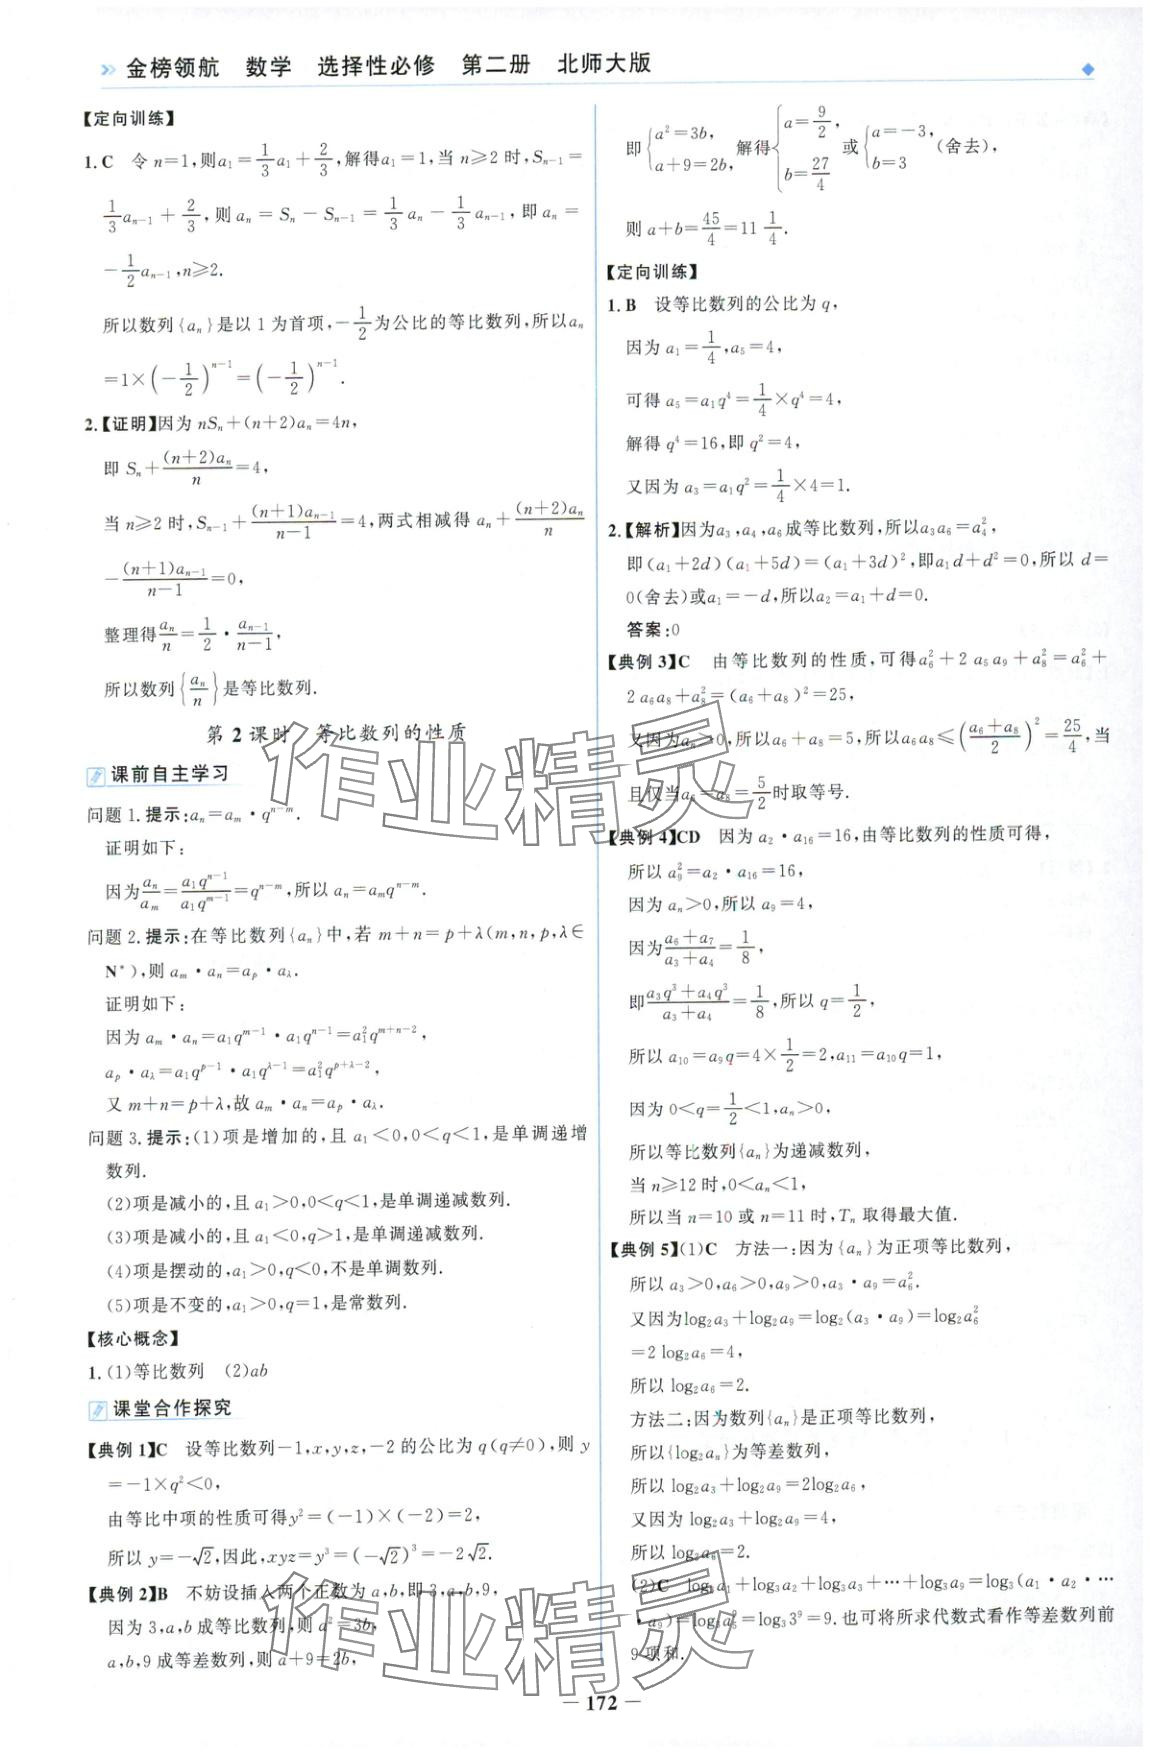 金榜领航 数学 选择性必修 第二册 北师大版
【定向训练】
1.C 令 n=1,则a₁=1/3 a₁+2/3,解得a₁=1,当 n≥2 时,Sₙ₋₁=
1/3 aₙ₋₁+2/3,则 aₙ=Sₙ-Sₙ₋₁=1/3 aₙ-1/3 aₙ₋₁,即 aₙ=
-1/2 aₙ₋₁,n≥2.
所以数列{aₙ}是以 1 为首项,-1/2为公比的等比数列,所以aₙ
=1×(-1/2)ⁿ⁻¹=(-1/2)ⁿ⁻¹.
2.【证明】因为 nSₙ+(n+2)aₙ=4n,
即 Sₙ+(n+2)aₙ/n=4,
当 n≥2 时,Sₙ₋₁+(n+1)aₙ₋₁/(n-1)=4,两式相减得 aₙ+(n+2)aₙ/n
-(n+1)aₙ₋₁/(n-1)=0,
整理得aₙ/n=1/2·aₙ₋₁/(n-1),
所以数列{aₙ/n}是等比数列.
第 2 课时 等比数列的性质
课前自主学习
问题 1.提示:aₙ=aₘ·qⁿ⁻ᵐ.
证明如下:
因为aₙ/aₘ=a₁qⁿ⁻¹/a₁qᵐ⁻¹=qⁿ⁻ᵐ,所以 aₙ=aₘqⁿ⁻ᵐ.
问题 2.提示:在等比数列{aₙ}中,若 m+n=p+λ(m,n,p,λ∈
N*),则 aₘ·aₙ=aₚ·a_λ.
证明如下:
因为 aₘ·aₙ=a₁qᵐ⁻¹·a₁qⁿ⁻¹=a₁²qᵐ⁺ⁿ⁻²,
aₚ·a_λ=a₁q^(p-1)·a₁q^(λ-1)=a₁²q^(p+λ-2),
又 m+n=p+λ,故 aₘ·aₙ=aₚ·a_λ.
问题 3.提示:(1)项是增加的,且 a₁<0,0<q<1,是单调递增
数列.
(2)项是减小的,且 a₁>0,0<q<1,是单调递减数列.
(3)项是减小的,且 a₁<0,q>1,是单调递减数列.
(4)项是摆动的,a₁>0,q<0,不是单调数列.
(5)项是不变的,a₁>0,q=1,是常数列.
【核心概念】
1.(1)等比数列 (2)ab
课堂合作探究
【典例 1】C 设等比数列-1,x,y,z,-2 的公比为 q(q≠0),则 y
=-1×q²<0,
由等比中项的性质可得y²=(-1)×(-2)=2,
所以 y=-√2,因此,xyz=y³=(-√2)³=-2√2.
【典例 2】B 不妨设插入两个正数为 a,b,即 3,a,b,9,
因为 3,a,b 成等比数列,则 a²=3b,
a,b,9 成等差数列,则 a+9=2b,
即{a²=3b, a+9=2b, 解得{a=9/2, b=27/4 或{a=-3, b=3 (舍去),
则 a+b=45/4=11 1/4.
【定向训练】
1.B 设等比数列的公比为 q,
因为 a₁=1/4,a₅=4,
可得 a₅=a₁q⁴=1/4×q⁴=4,
解得 q⁴=16,即 q²=4,
又因为 a₃=a₁q²=1/4×4=1.
2.【解析】因为a₃,a₄,a₆成等比数列,所以a₃a₆=a₄²,
即(a₁+2d)(a₁+5d)=(a₁+3d)²,即a₁d+d²=0,所以 d=
0(舍去)或a₁=-d,所以a₂=a₁+d=0.
答案:0
【典例 3】C 由等比数列的性质,可得a₆²+2 a₅a₉+a₈²=a₆²+
2 a₆a₈+a₈²=(a₆+a₈)²=25,
又因为aₙ>0,所以a₆+a₈=5,所以a₆a₈≤((a₆+a₈)/2)²=25/4,当
且仅当a₆=a₈=5/2时取等号.
【典例 4】CD 因为 a₂·a₁₆=16,由等比数列的性质可得,
所以 a₉²=a₂·a₁₆=16,
因为 aₙ>0,所以 a₉=4,
因为(a₆+a₇)/(a₃+a₄)=1/8,
即(a₃q³+a₄q³)/(a₃+a₄)=1/8,所以 q=1/2,
所以 a₁₀=a₉q=4×1/2=2,a₁₁=a₁₀q=1,
因为 0<q=1/2<1,aₙ>0,
所以等比数列{aₙ}为递减数列,
当 n≥12 时,0<aₙ<1,
所以当 n=10 或 n=11 时,Tₙ 取得最大值.
【典例 5】(1)C 方法一:因为{aₙ}为正项等比数列,
所以 a₃>0,a₆>0,a₉>0,a₃·a₉=a₆².
又因为log₂a₃+log₂a₉=log₂(a₃·a₉)=log₂a₆²
=2 log₂a₆=4,
所以 log₂a₆=2.
方法二:因为数列{aₙ}是正项等比数列,
所以{log₂aₙ}为等差数列,
所以 log₂a₃+log₂a₉=2log₂a₆,
又因为 log₂a₃+log₂a₉=4,
所以 log₂a₆=2.
(2)C log₃a₁+log₃a₂+log₃a₃+…+log₃a₉=log₃(a₁·a₂·…
·a₉)=log₃a₅⁹=log₃3⁹=9.也可将所求代数式看作等差数列前
9 项和.
作业精灵
作业精灵
— 172 —